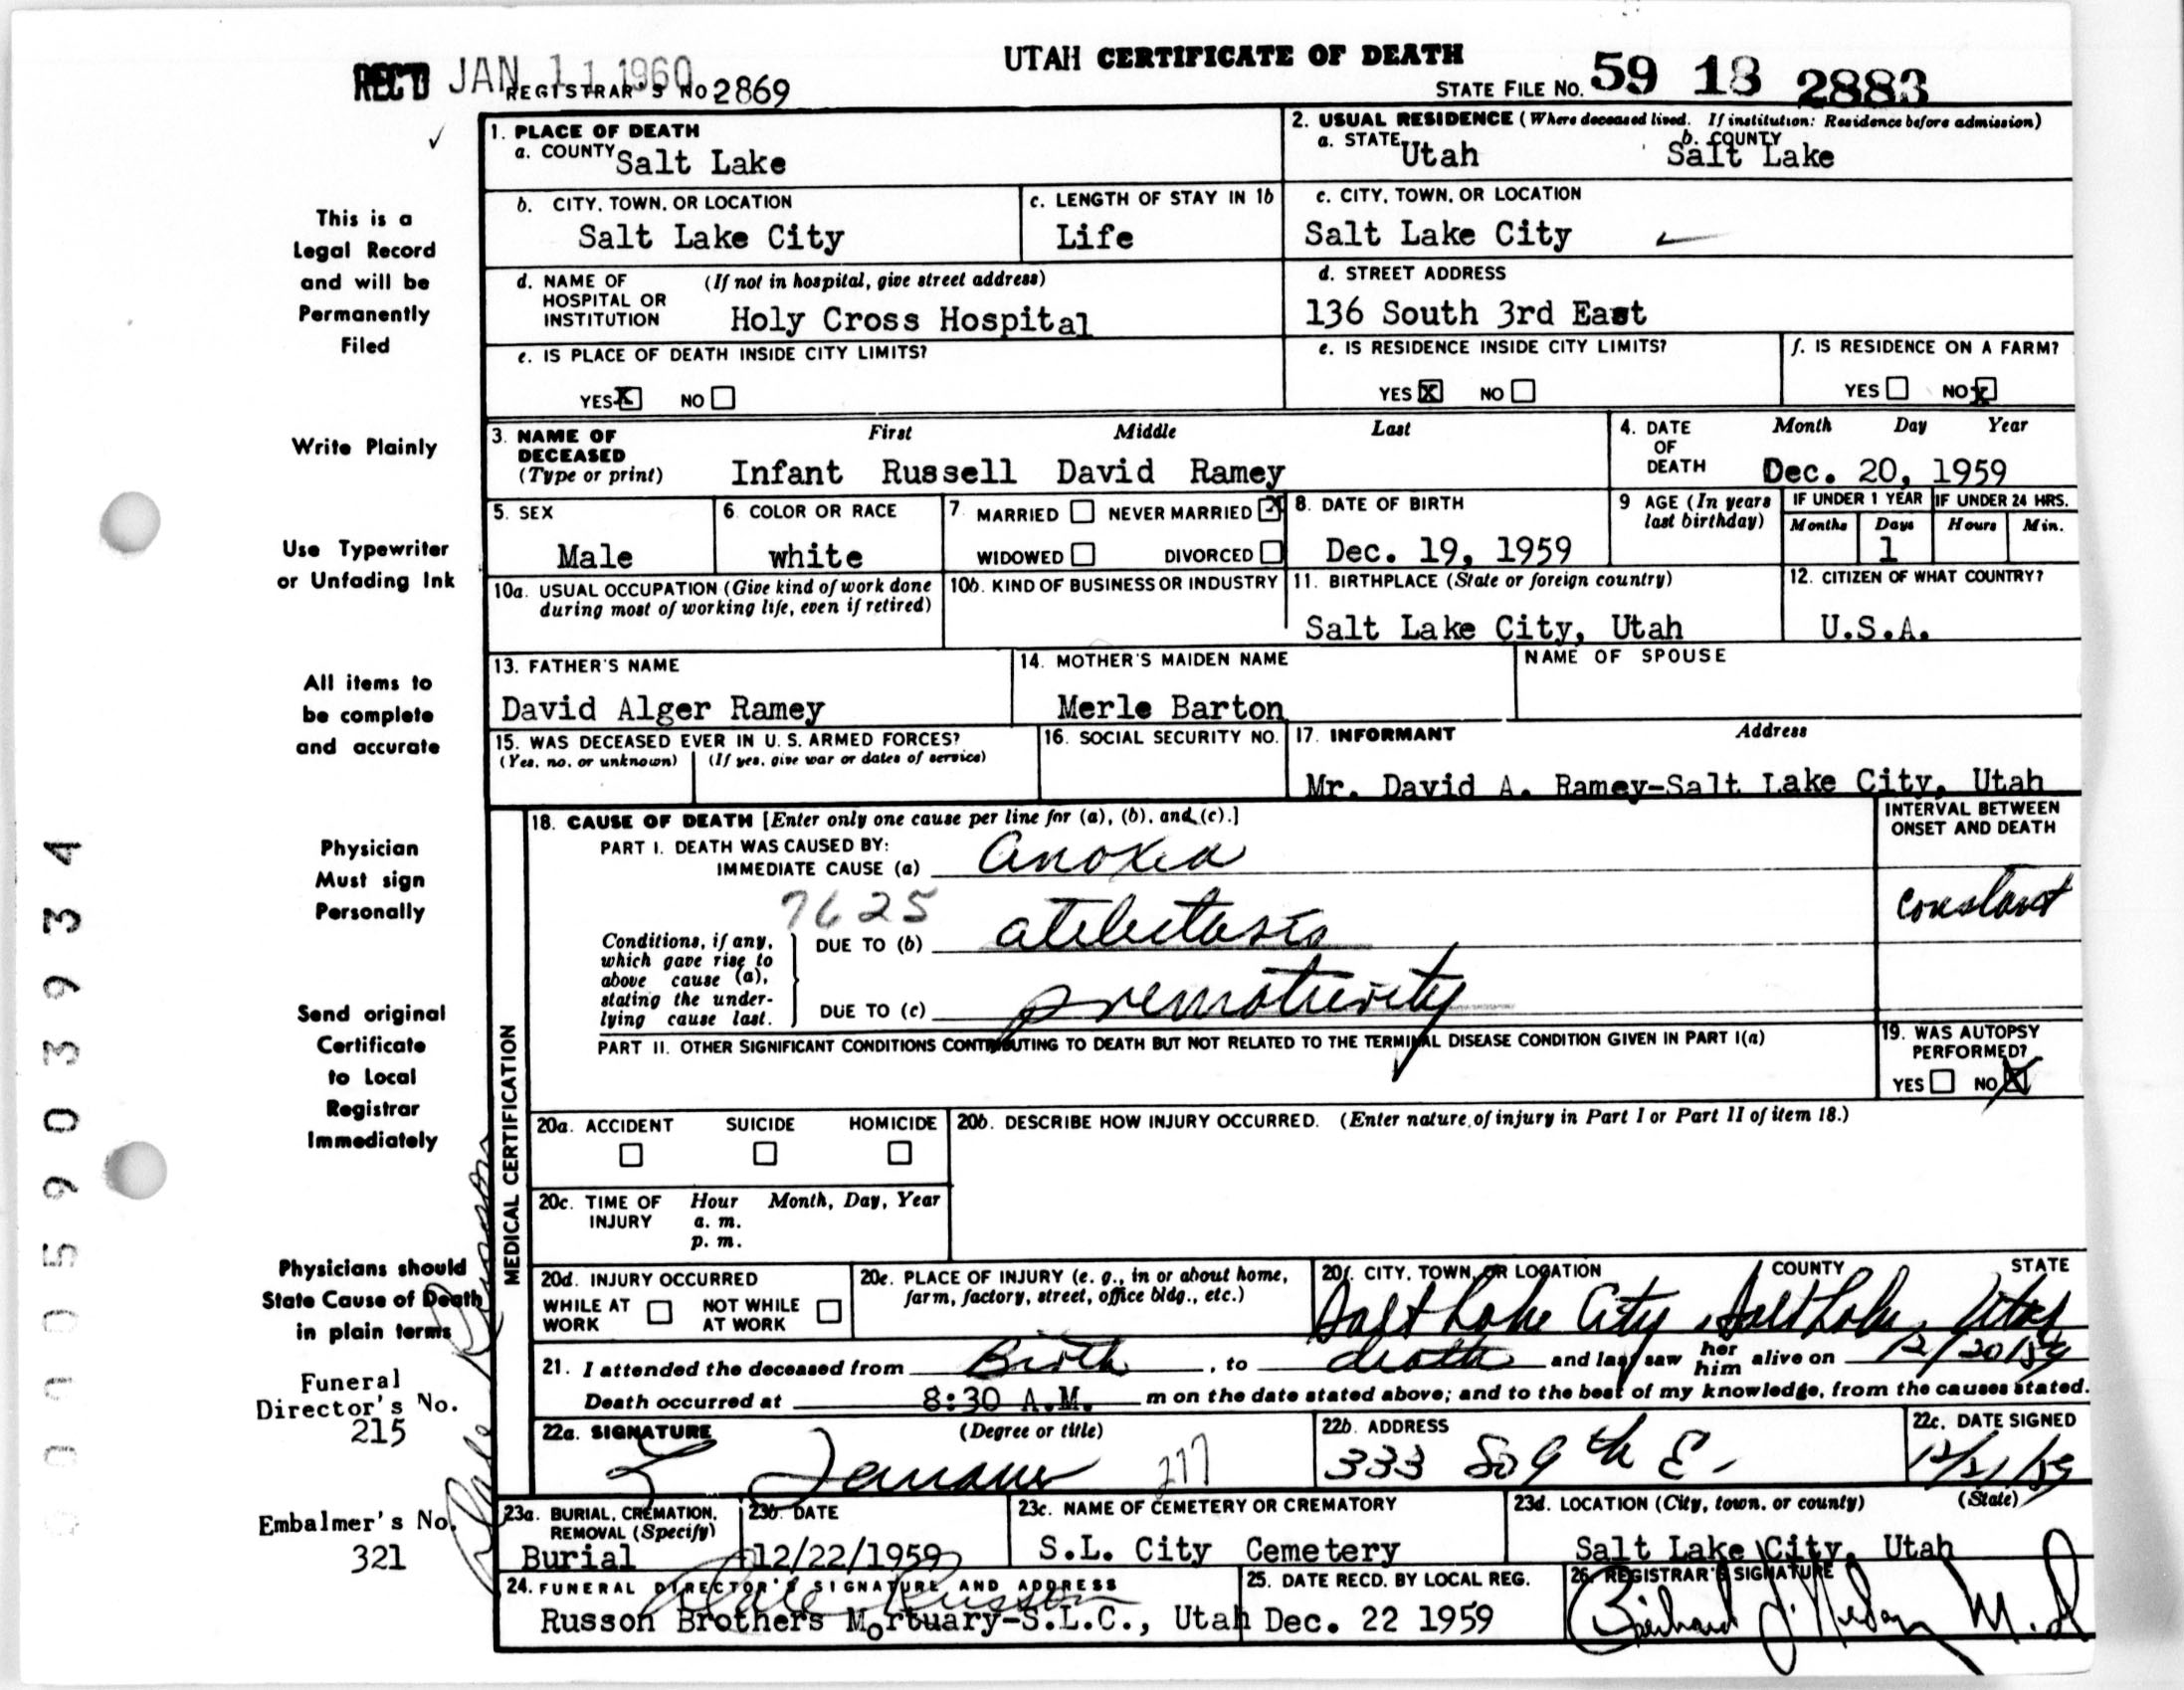 UTAH CERTIFICATE OF DEATH
REC'D JAN 11 1960
REGISTRAR'S NO 2869
STATE FILE NO. 59 18 2883
This is a
Legal Record
and will be
Permanently
Filed
Write Plainly
Use Typewriter
or Unfading Ink
All items to
be complete
and accurate
Physician
Must sign
Personally
Send original
Certificate
to Local
Registrar
Immediately
Physicians should
State Cause of Death
in plain terms
Funeral
Director's No.
215
Embalmer's No.
321
1. PLACE OF DEATH
a. COUNTY Salt Lake
2. USUAL RESIDENCE (Where deceased lived. If institution: Residence before admission)
a. STATE Utah b. COUNTY Salt Lake
b. CITY, TOWN, OR LOCATION
Salt Lake City
c. LENGTH OF STAY IN 1b
Life
c. CITY, TOWN, OR LOCATION
Salt Lake City
d. NAME OF (If not in hospital, give street address)
HOSPITAL OR
INSTITUTION Holy Cross Hospital
d. STREET ADDRESS
136 South 3rd East
e. IS PLACE OF DEATH INSIDE CITY LIMITS?
YES X NO
e. IS RESIDENCE INSIDE CITY LIMITS?
YES X NO
f. IS RESIDENCE ON A FARM?
YES NO X
3. NAME OF First Middle Last
DECEASED
(Type or print) Infant Russell David Ramey
4. DATE Month Day Year
OF
DEATH Dec. 20, 1959
5. SEX
Male
6. COLOR OR RACE
white
7. MARRIED NEVER MARRIED X
WIDOWED DIVORCED
8. DATE OF BIRTH
Dec. 19, 1959
9 AGE (In years
last birthday)
IF UNDER 1 YEAR IF UNDER 24 HRS.
Months Days Hours Min.
1
10a. USUAL OCCUPATION (Give kind of work done
during most of working life, even if retired)
10b. KIND OF BUSINESS OR INDUSTRY
11. BIRTHPLACE (State or foreign country)
Salt Lake City, Utah
12. CITIZEN OF WHAT COUNTRY?
U.S.A.
13. FATHER'S NAME
David Alger Ramey
14. MOTHER'S MAIDEN NAME
Merle Barton
NAME OF SPOUSE
15. WAS DECEASED EVER IN U. S. ARMED FORCES?
(Yes, no, or unknown) (If yes, give war or dates of service)
16. SOCIAL SECURITY NO.
17. INFORMANT Address
Mr. David A. Ramey-Salt Lake City, Utah
MEDICAL CERTIFICATION
18. CAUSE OF DEATH [Enter only one cause per line for (a), (b), and (c).]
PART I. DEATH WAS CAUSED BY:
IMMEDIATE CAUSE (a) anoxia
INTERVAL BETWEEN
ONSET AND DEATH
constant
7625
Conditions, if any,
which gave rise to
above cause (a),
stating the under-
lying cause last.
DUE TO (b) atelectasis
DUE TO (c) prematurity
PART II. OTHER SIGNIFICANT CONDITIONS CONTRIBUTING TO DEATH BUT NOT RELATED TO THE TERMINAL DISEASE CONDITION GIVEN IN PART I(a)
19. WAS AUTOPSY
PERFORMED?
YES NO X
20a. ACCIDENT SUICIDE HOMICIDE
20b. DESCRIBE HOW INJURY OCCURRED. (Enter nature of injury in Part I or Part II of item 18.)
20c. TIME OF Hour Month, Day, Year
INJURY a. m.
p. m.
20d. INJURY OCCURRED
WHILE AT WORK NOT WHILE AT WORK
20e. PLACE OF INJURY (e. g., in or about home,
farm, factory, street, office bldg., etc.)
20f. CITY, TOWN, OR LOCATION COUNTY STATE
Salt Lake City, Salt Lake, Utah
21. I attended the deceased from Birth, to death and last saw her him alive on 12/20/59
Death occurred at 8:30 A.M. m on the date stated above; and to the best of my knowledge, from the causes stated.
22a. SIGNATURE (Degree or title)
277
22b. ADDRESS
333 So 9th E.
22c. DATE SIGNED
12/21/59
23a. BURIAL, CREMATION,
REMOVAL (Specify)
Burial
23b. DATE
12/22/1959
23c. NAME OF CEMETERY OR CREMATORY
S.L. City Cemetery
23d. LOCATION (City, town, or county) (State)
Salt Lake City, Utah
24. FUNERAL DIRECTOR'S SIGNATURE AND ADDRESS
Dale Russon
Russon Brothers Mortuary-S.L.C., Utah
25. DATE RECD. BY LOCAL REG.
Dec. 22 1959
26. REGISTRAR'S SIGNATURE
M.D
Dale Russon
0005903934